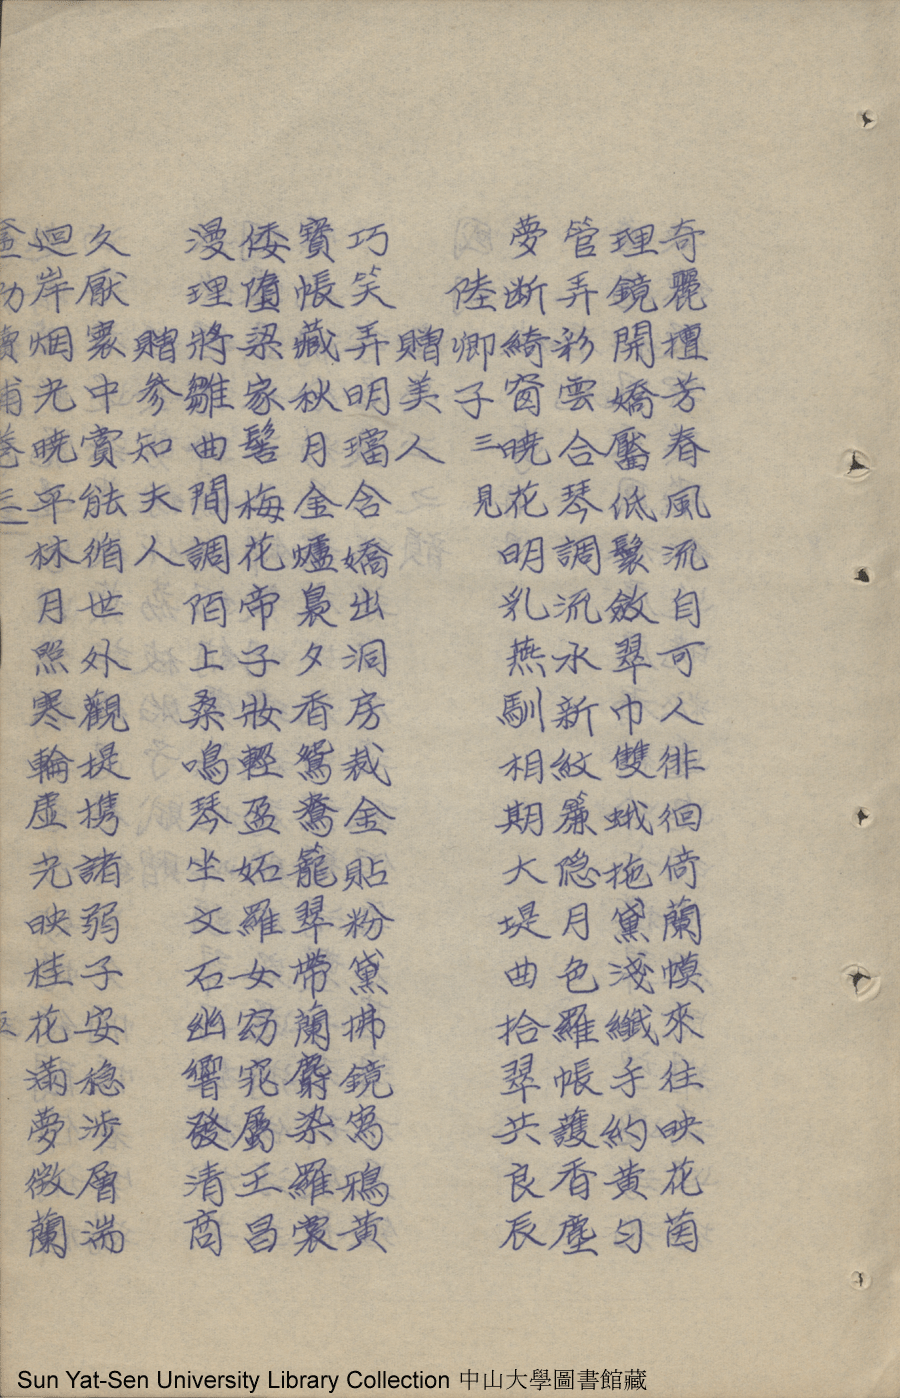 奇麗擅芳春風流自可人徘徊倚蘭幙來往映花茵
理鏡開嬌靨低鬟斂翠巾雙蛾拖黛淺纖手約黃勻
管弄彩雲合琴調流水新紋簾隐月色羅帳護香塵
夢断綺窗曉花明乳燕馴相期大堤曲拾翠共良辰
陸卿子三見
贈美人
巧笑弄明璫含嬌出洞房裁金貼粉黛拂鏡寫鴉黃
寳帳藏秋月金爐裊夕香鴛鴦籠翠帶蘭麝染羅裳
倭墮梁家髻梅花帝子妝輕盈妬羅女窈窕屬王昌
漫理將雛曲間調陌上桑鳴琴坐文石幽響發清商
贈參知夫人
久厭寰中賞能循世外觀堤携諸弱子安稳涉層湍
迴岸烟光曉平林月照寒輪虛光映桂花滿夢徵蘭